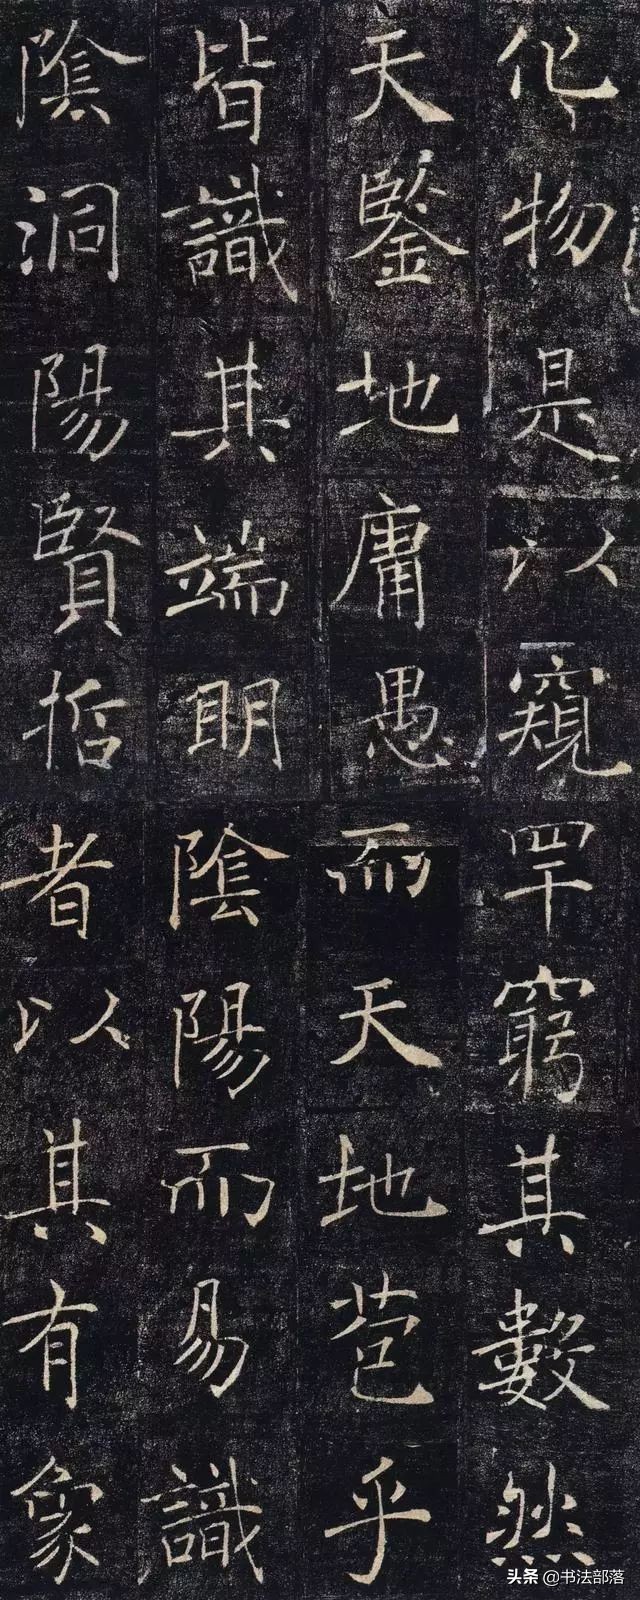 化物是以窺
天鑒地庸愚
皆識其端明
陰洞陽賢哲
罕窮其數然
而天地苞乎
陰陽而易識
者以其有象
头条 @书法部落